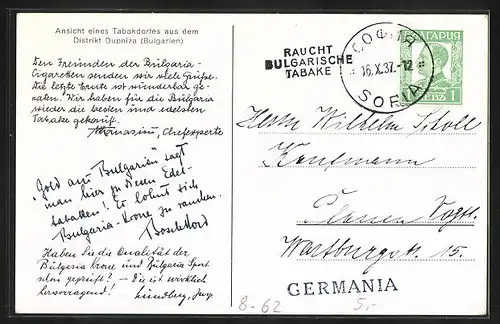 Ansicht eines Tabakdorfes aus dem
Distrikt Dupniza (Bulgarien)
Den Freunden der Bulgaria-
Cigaretten senden wir viele Grüsse.
Die letzte Ernte ist wunderbar ge-
raten! Wir haben für die Bulgaria
wieder die besten und edelsten
Tabake gekauft.
Chefexperte
"Gold aus Bulgarien" sagt
man hier zu diesen Edel-
tabaken! Es lohnt sich
Bulgaria-Krone zu rauchen.
Haben Sie die Qualität der
Bulgaria Krone und Bulgaria Sport
schon geprüft? – die ist wirklich
hervorragend!
RAUCHT
BULGARISCHE
TABAKE
СОФИЯ
16.X.37.-12
SOFIA
1
Herrn Wilhelm Scholl
Kaufmann
Plauen Vogtl.
Wartburgstr. 15.
GERMANIA
8-62
5,-